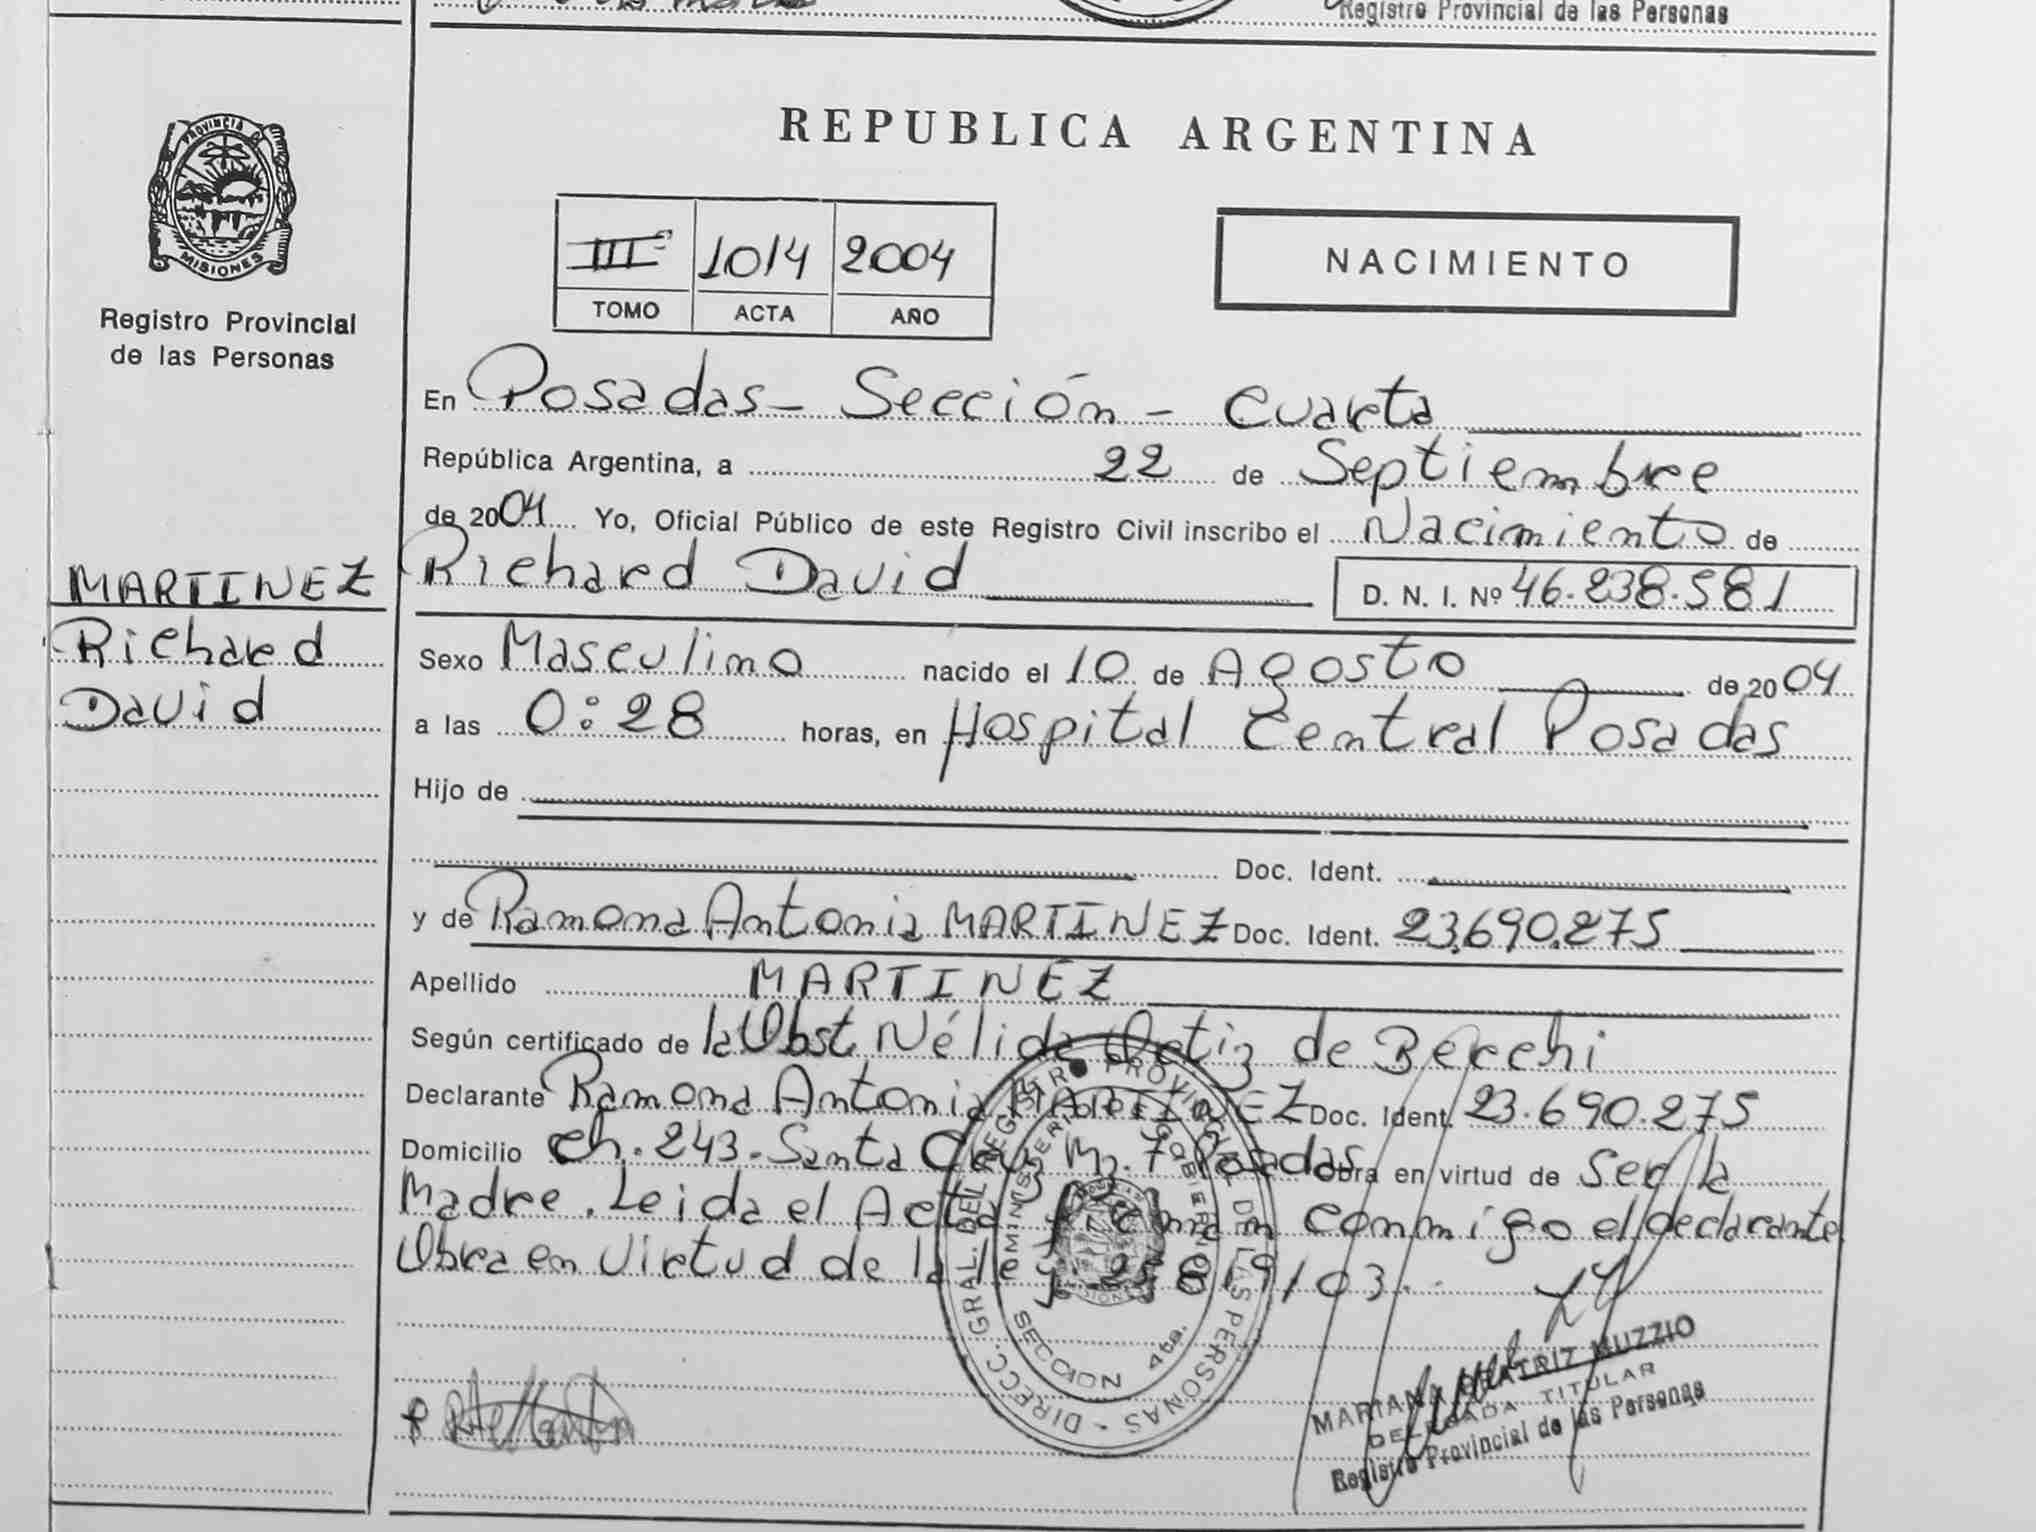 Registro Provincial de las Personas
PROVINCIA D
MISIONES
Registro Provincial
de las Personas
MARTINEZ
Richard
David
REPUBLICA ARGENTINA
III º 1014 2004
TOMO ACTA AÑO
NACIMIENTO
En Posadas - Sección - Cuarta
República Argentina, a 22 de Septiembre
de 2004 Yo, Oficial Público de este Registro Civil inscribo el Nacimiento de
Richard David D. N. I. Nº 46.238.581
Sexo Masculino nacido el 10 de Agosto de 2004
a las 0:28 horas, en Hospital Central Posadas
Hijo de
Doc. Ident.
y de Ramona Antonia MARTINEZ Doc. Ident. 23.690.275
Apellido MARTINEZ
Según certificado de la Obst. Nélida Ortiz de Becchi
Declarante Ramona Antonia MARTINEZ Doc. Ident. 23.690.275
Domicilio Ch. 243. Santa Cruz Mz. 7 Posadas Obra en virtud de Ser la
Madre. Leida el Acta firman conmigo el declarante
Obra en Virtud de la ley 25819/03.
DIRECC. GRAL. DEL REGISTRO PROVINCIAL DE LAS PERSONAS
MINISTERIO DE GOBIERNO
SECCION 4ta.
MISIONES
MARIANA BEATRIZ MUZZIO
DELEGADA TITULAR
Registro Provincial de las Personas